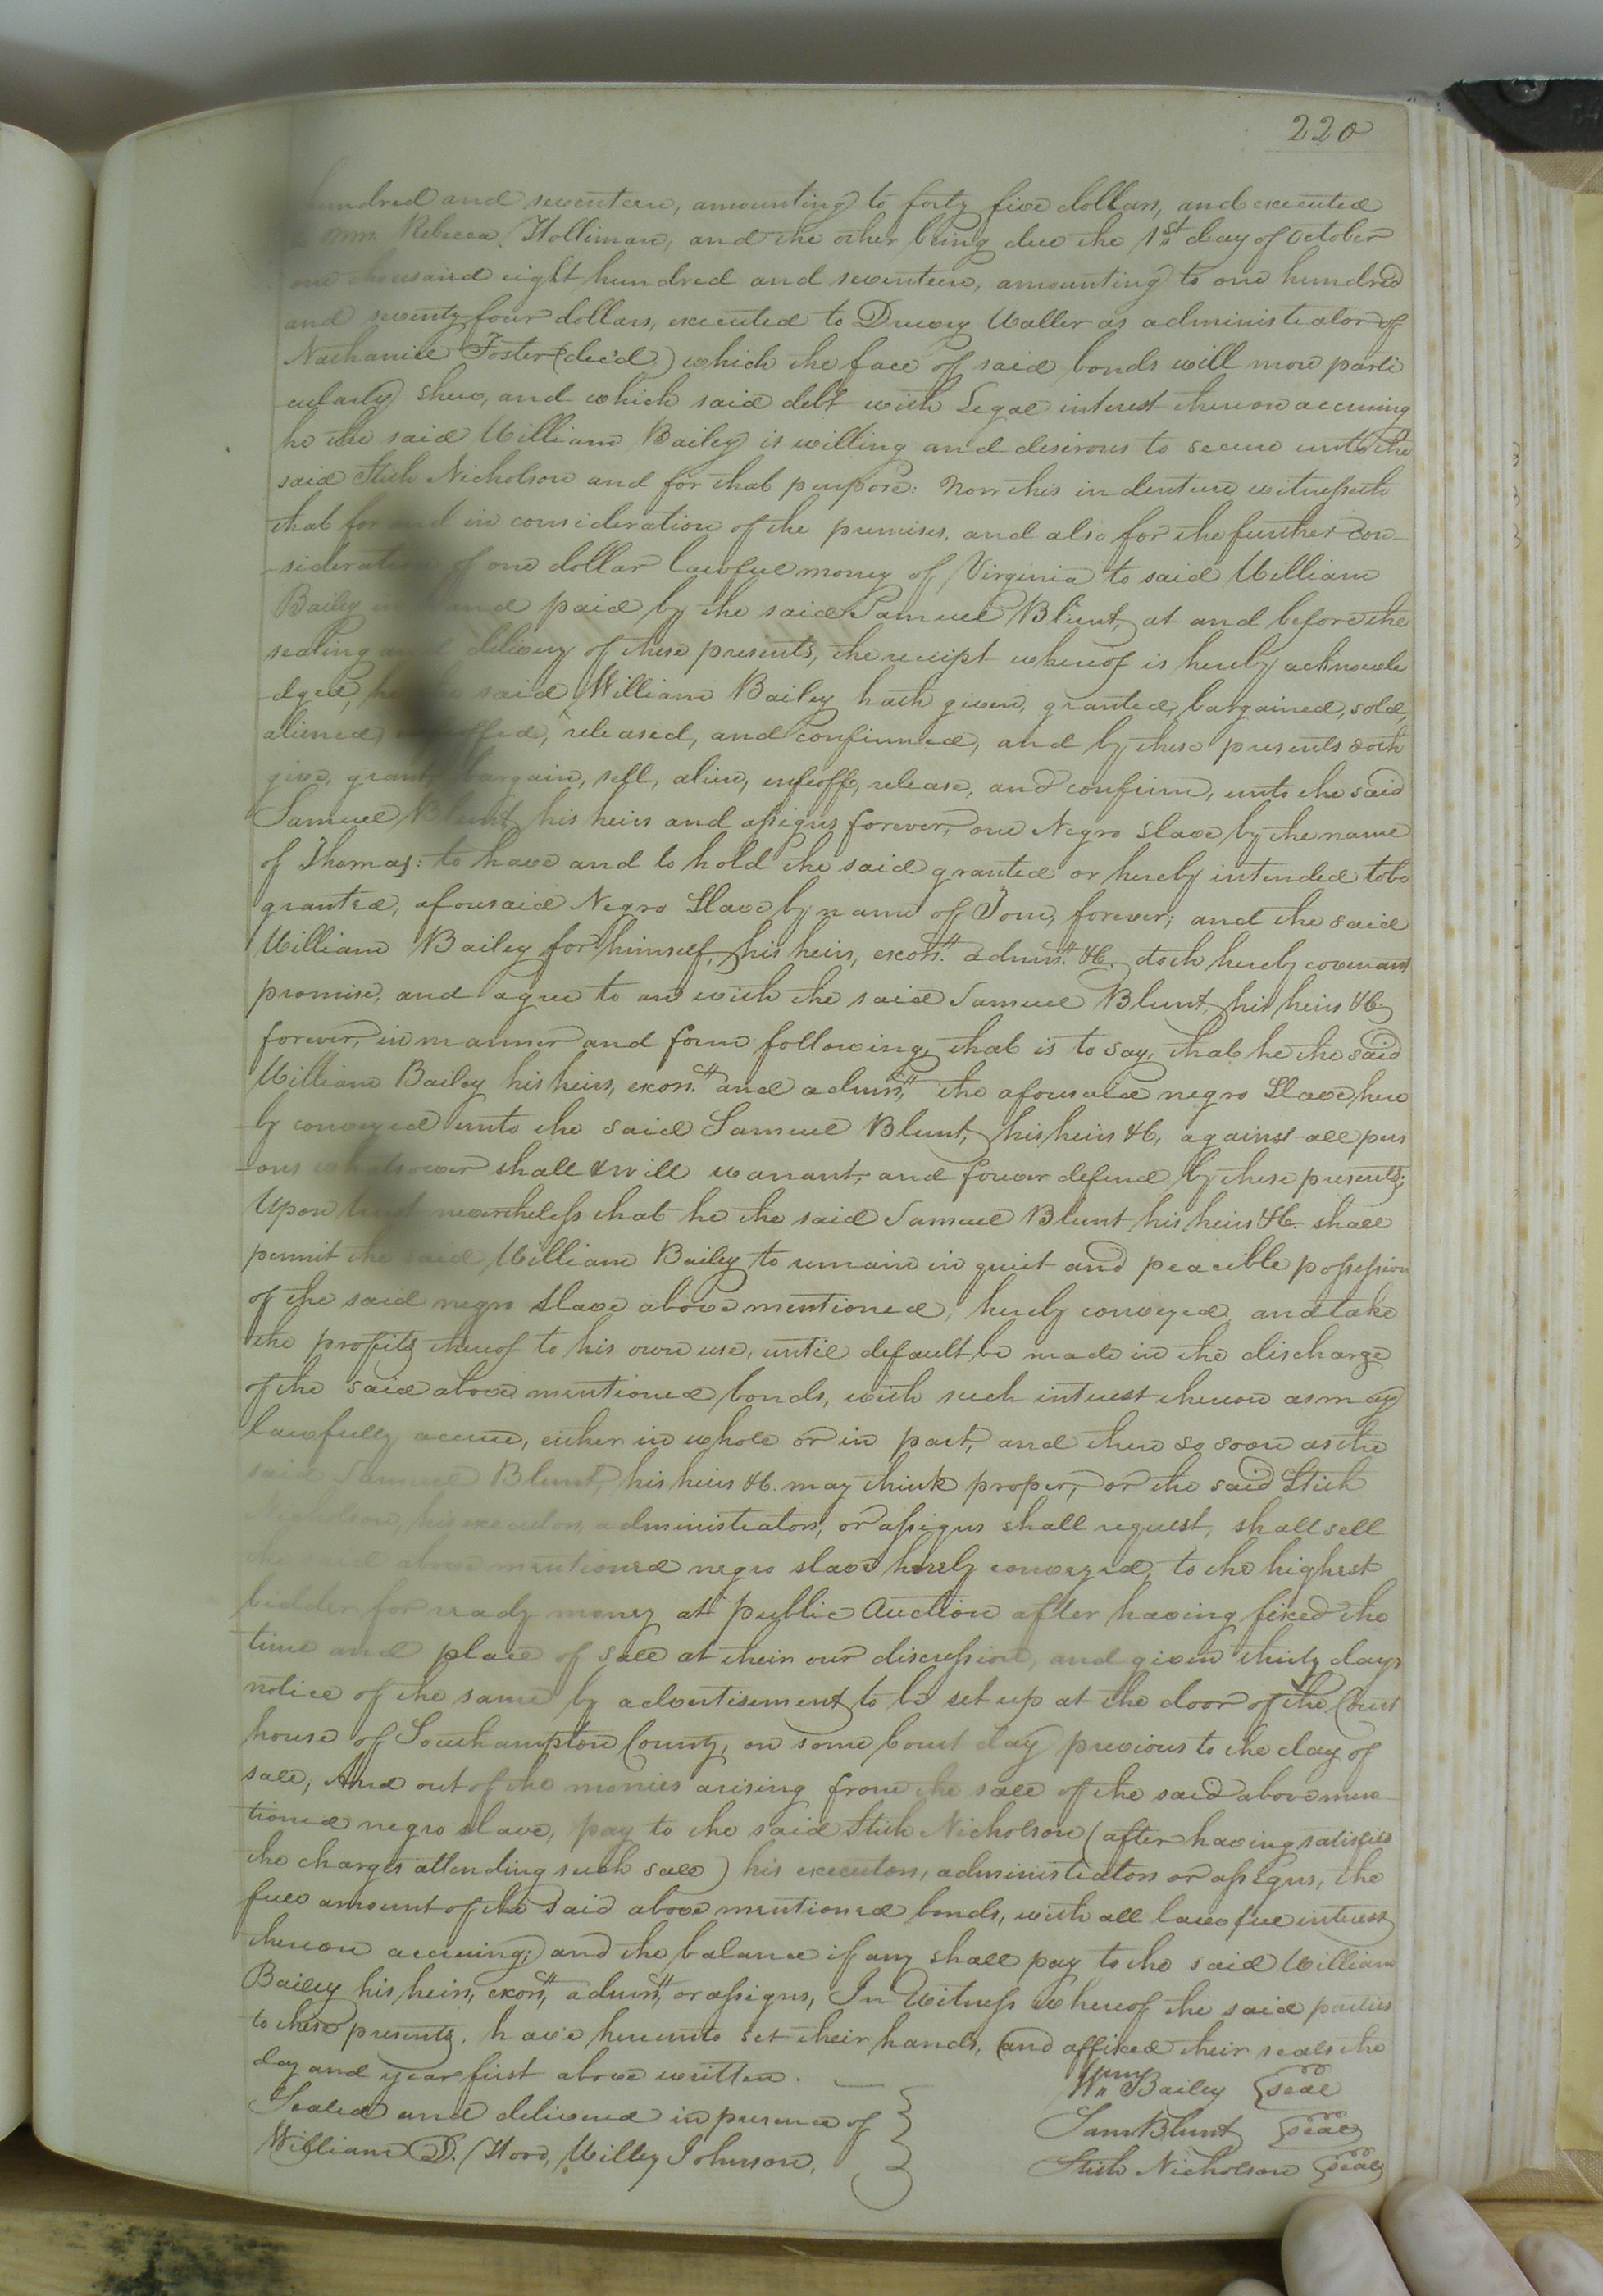 220
hundred and seventeen, amounting to forty five dollars, and executed
Mrs. Rebecca Holliman, and the other being due the 1st day of October
one thousand eight hundred and seventeen, amounting to one hundred
and seventy four dollars, executed to Drewry Waller as administrator of
Nathaniel Foster (dec'd) which the face of said bonds will more parti
cularly shew, and which said debt with Legal interest thereon accruing
he the said William Bailey is willing and desirous to secure unto the
said Stith Nicholson and for that purpose: Now this indenture witnesseth
that for and in consideration of the premises, and also for the further con-
-sideration of one dollar lawful money of Virginia to said William
Bailey in hand paid by the said Samuel Blunt, at and before the
sealing and delivery of these presents, the receipt whereof is hereby acknowle
-dged, he the said William Bailey hath given, granted, bargained, sold,
aliened, enfeoffed, released, and confirmed, and by these presents doth
give, grant, bargain, sell, alien, enfeoff, release, and confirm, unto the said
Samuel Blunt, his heirs and assigns forever, one Negro slave by the name
of Thomas: to have and to hold the said granted or hereby intended to be
granted, aforesaid Negro Slave by name of Tom, forever; and the said
William Bailey for himself, his heirs, exors. admrs. &c. doth hereby covenant
promise, and agree to and with the said Samuel Blunt, his heirs &c
forever, in manner and form following, that is to say, that he the said
William Bailey his heirs, exors. and admrs, the aforesaid negro Slave here
by conveyed unto the said Samuel Blunt, his heirs &c, against all pers
-ons whatsoever shall & will warrant, and forever defend by these presents;
Upon trust nevertheless that he the said Samuel Blunt his heirs &c. shall
permit the said William Bailey to remain in quiet and peacible possession
of the said negro slave above mentioned, hereby conveyed, and take
the profits thereof to his own use, until default be made in the discharge
of the said above mentioned bonds, with such interest thereon as may
lawfully accrue, either in whole or in part, and then so soon as the
said Samuel Blunt, his heirs &c. may think proper, or the said Stith
Nicholson, his executors, administrators, or assigns shall request, shall sell
the said above mentioned negro slave hereby conveyed, to the highest
bidder for ready money at public Auction after having fixed the
time and place of sale at their own discression, and given thirty days
notice of the same by advertisement to be set up at the door of the Court
house of Southampton County, on some Court day previous to the day of
sale, And out of the monies arising from the sale of the said above men-
tioned negro slave, pay to the said Stith Nicholson (after having satisfied
the charges attending such sale) his executors, administrators or assigns, the
full amount of the said above mentioned bonds, with all lawful interest
thereon accruing; and the balance if any shall pay to the said William
Bailey his heirs, exors, admrs, or assigns, In Witness whereof the said parties
to these presents, have hereunto set their hands, and affixed their seals the
day and year first above written.
Wm Bailey {seal
Sealed and delivered in presence of } Sam Blunt {seal
William D. Hood, Willey Johnson, Stith Nicholson {seal